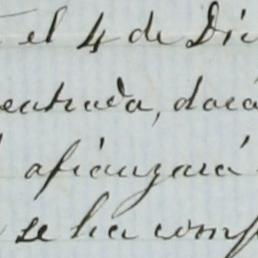 el 4 de Dic
entrada, dará
afianzará
se ha comp